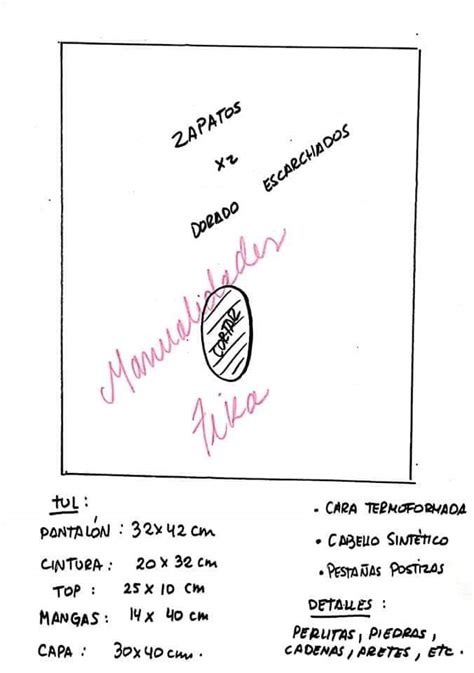 ZAPATOS
x2
DORADO ESCARCHADOS
Manualidades
CORTAR
Fika
TUL :
PANTALÓN : 32x42 cm
CINTURA : 20 x 32 cm
TOP : 25 x 10 cm
MANGAS : 14 x 40 cm
CAPA : 30x40 cm.
• CARA TERMOFORMADA
• CABELLO SINTÉTICO
• PESTAÑAS POSTIZAS
DETALLES :
PERLITAS, PIEDRAS,
CADENAS, ARETES, ETC.